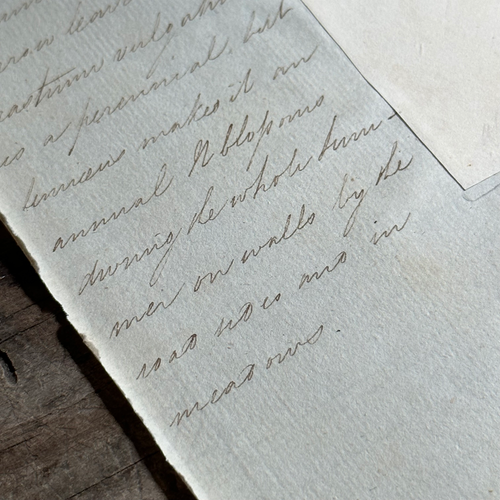 vulgatum
is a perennial, but
makes it an
annual. It blossoms
during the whole sum-
mer on walls by the
road sides and in
meadows.